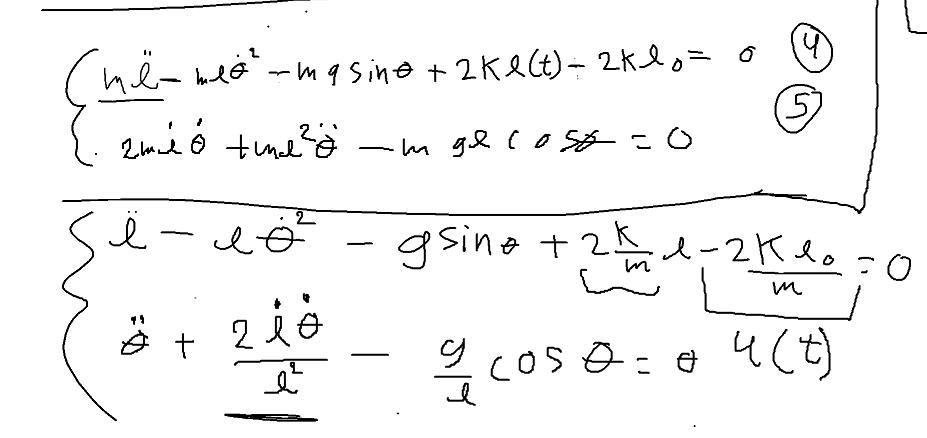 m l̈ − m l θ̇² − m g sin θ + 2 K l(t) − 2 K l₀ = 0 ④
2 m l̇ θ̇ + m l² θ̈ − m g l cos θ = 0 ⑤
l̈ − l θ̇² − g sin θ + 2 K/m l − 2 K l₀/m = 0
θ̈ + 2 l̇ θ̇/l² − g/l cos θ = 0 4(t)